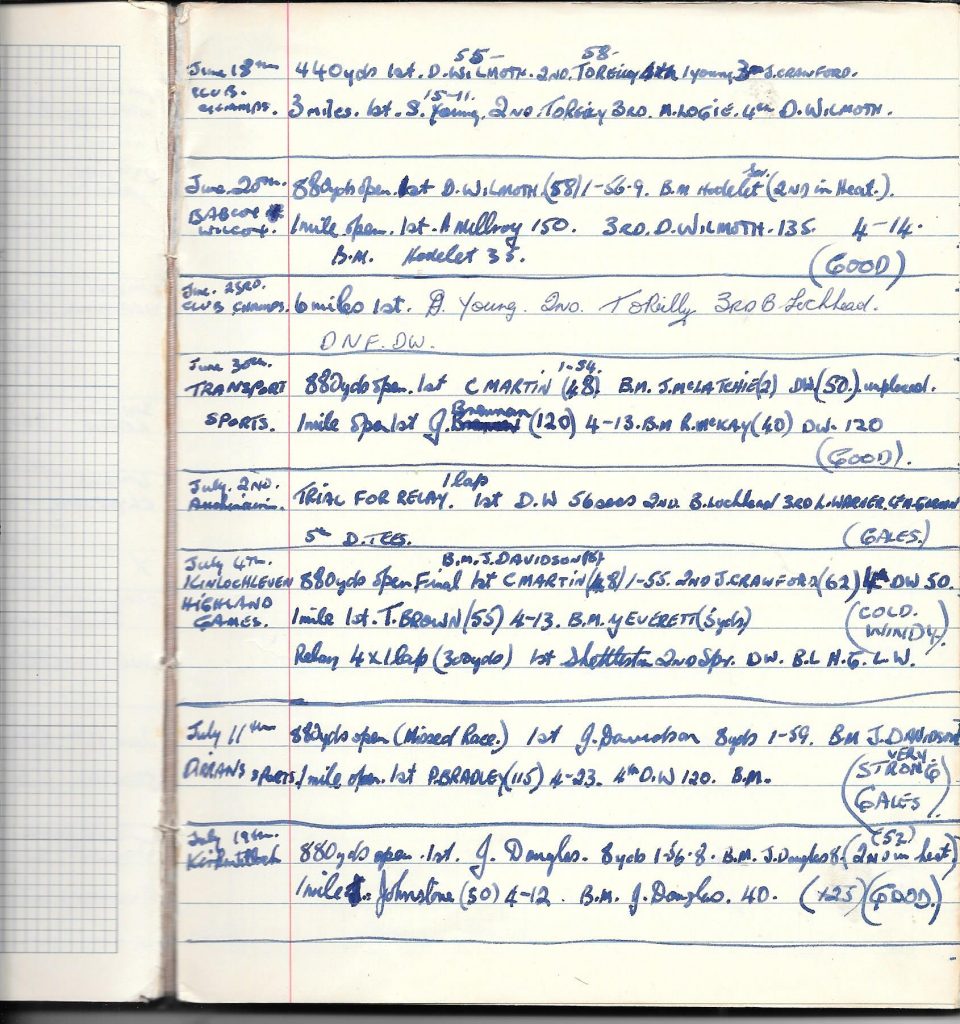 55- 58-
June 18th 440yds 1st. D. WILMOTH. 2ND. TOREILLY 1 young 3rd J. CRAWFORD.
15-11.
CLUB CHAMPS. 3 miles. 1st. S. Young. 2ND. TOREILLY 3RD. A. LOGIE. 4th D. WILMOTH.
June 20th. 880yds open. 1st D. WILMOTH. (58) 1-56.9. B.M Hodelet (2ND in Heat.).
BABCOX WILCOX. 1 mile open. 1st. A McIlroy 150. 3RD. D. WILMOTH. 135. 4-14.
B.M. Hodelet 35. (GOOD)
June. 23RD.
CLUB CHAMPS. 6 miles 1st. Young. 2nd. TOReilly 3RD B. Lochhead.
DNF. DW.
June 30th. 1-54.
TRANSPORT 880yds open. 1st C MARTIN (48) B.M. J. McLATCHIE (2) DW (50.) unplaced.
Brennan
SPORTS. 1 mile open 1st J. (120) 4-13. B.M R. McKAY (40) DW. 120
(GOOD).
July. 2ND. 1 lap
TRIAL FOR RELAY. 1st D.W 56 secs 2ND. B. Lochhead 3RD L. WARNER.
5th D. TEES. (GALES.)
July 4th. B.M. J. DAVIDSON (8)
KINLOCHLEVEN 880yds open Final 1st C MARTIN (48) 1-55. 2ND J. CRAWFORD (62) 4th DW 50.
HIGHLAND GAMES. 1 mile 1st. T. BROWN (55) 4-13. B.M. G EVERETT (5yds) (COLD. WINDY)
Relay 4 x 1 lap (300yds) 1st Shettleston 2ND Spr. DW. B.L H.G. L W.
July 11th 880yds open (Missed Race.) 1st J. Davidson 8yds 1-59. B.M J. DAVIDSON
DIRRANS SPORTS. 1 mile open. 1st P. BRADLEY (115) 4-23. 4th D.W 120. B.M. (VERY STRONG GALES.)
July 19th. (52)
Kirkintilloch 880yds open. 1st. J. Douglas. 8yds 1-56.8. B.M. J. Douglas 8. (2ND in heat)
1 mile Johnstone (50) 4-12. B.M. J. Douglas. 40. (125) (GOOD.)